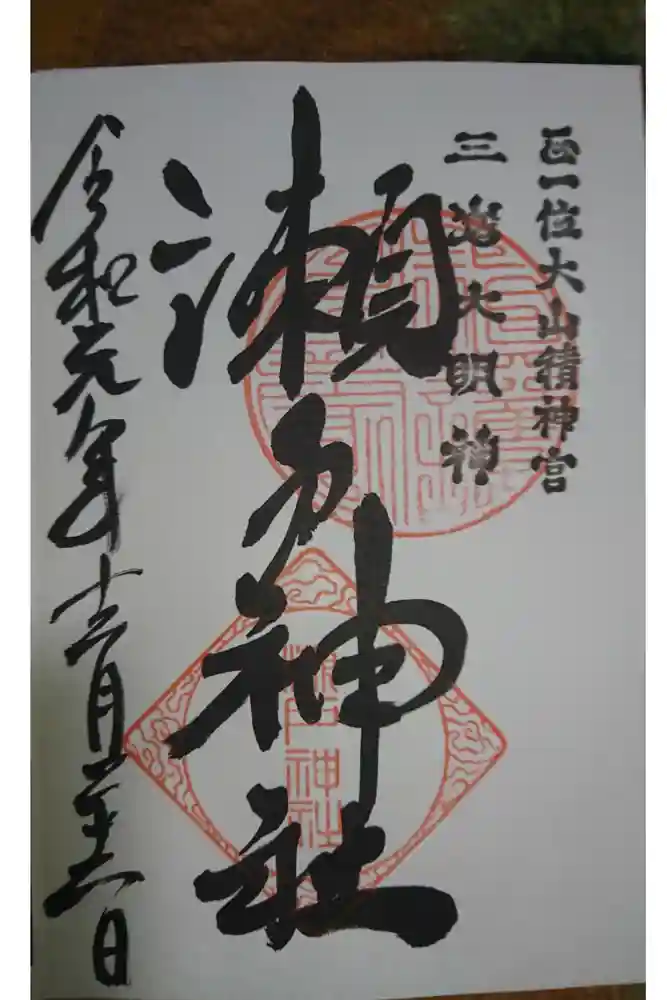 正一位大山積神宮
三嶋大明神
瀬戸神社
令和元年十二月
瀬戸神社